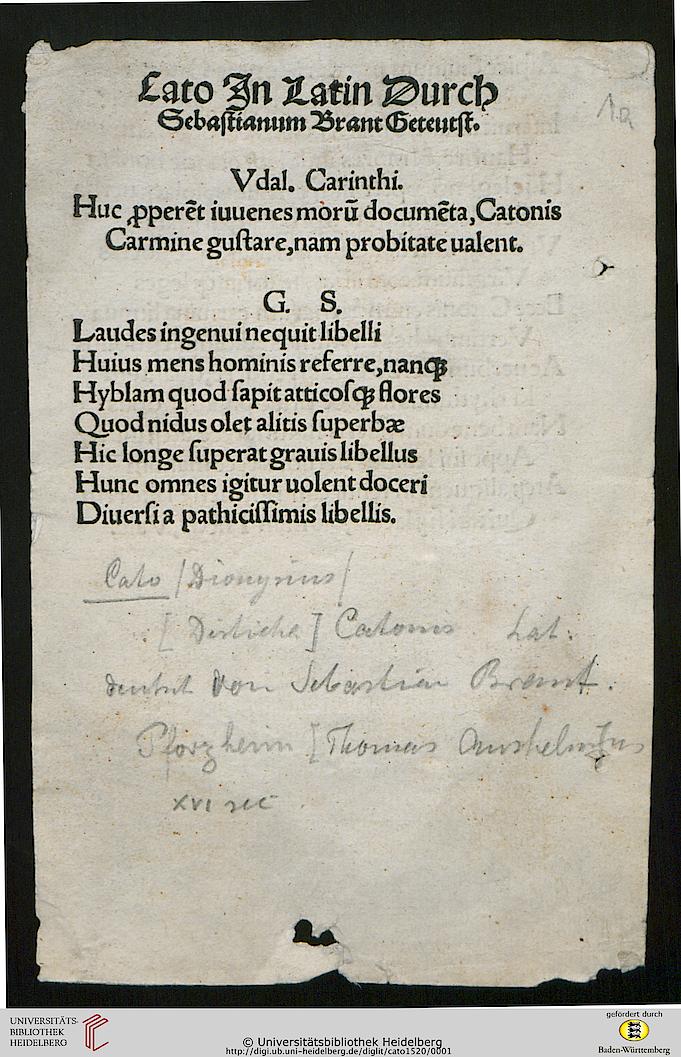 Cato In Latin Durch
Sebastianum Brant Geteutst.
1a
Vdal. Carinthi.
Huc ꝓperẽt iuuenes morũ documẽta, Catonis
Carmine gustare, nam probitate ualent.
G. S.
Laudes ingenui nequit libelli
Huius mens hominis referre, nanqꝫ
Hyblam quod ſapit atticoſqꝫ flores
Quod nidus olet alitis ſuperbæ
Hic longe ſuperat grauis libellus
Hunc omnes igitur uolent doceri
Diuerſi a pathiciſſimis libellis.
Cato / Dionysius /
[ Disticha ] Catonis Lat.
deutsch von Sebastian Brant.
Pforzheim [ Thomas Anshelmus
XVI sec
UNIVERSITÄTS-
BIBLIOTHEK
HEIDELBERG
© Universitätsbibliothek Heidelberg
http://digi.ub.uni-heidelberg.de/diglit/cato1520/0001
gefördert durch
Baden-Württemberg